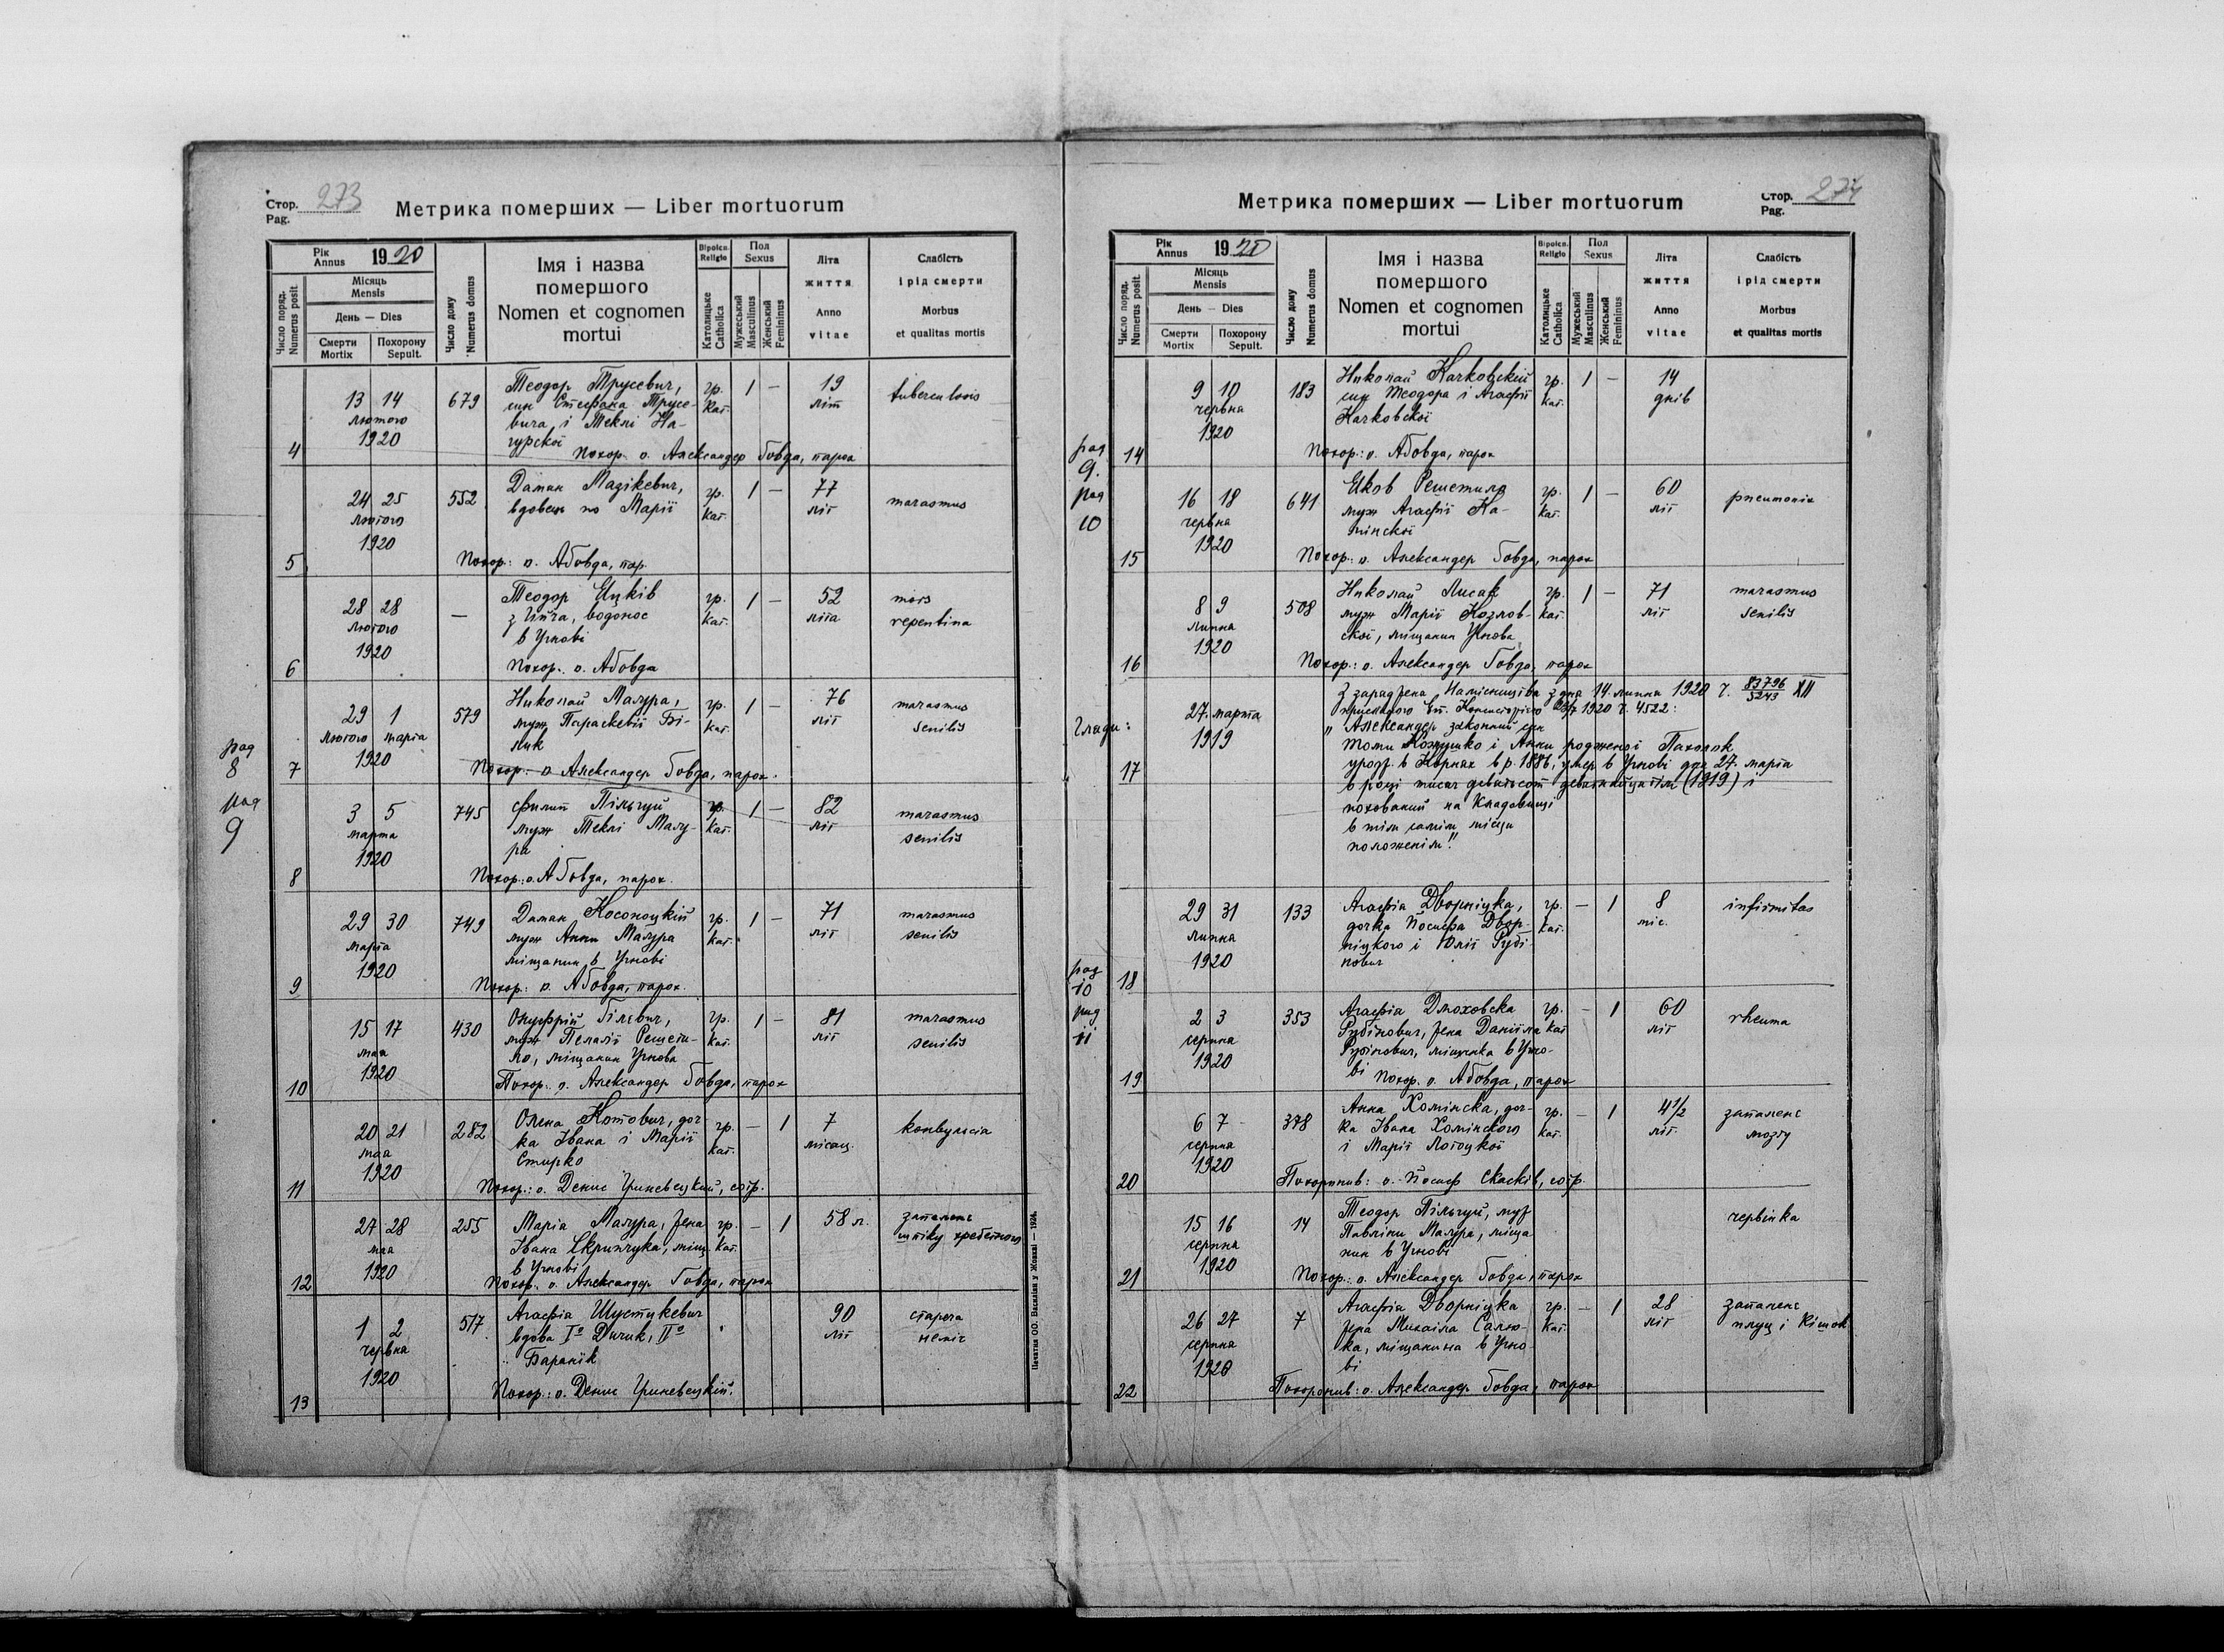 Стор. 273
Pag.
Метрика померших — Liber mortuorum
Рік Annus 1920
Місяць Mensis
День — Dies
Число поряд. Numerus posit
Смерти Mortix
Похорону Sepult.
Число дому Numerus domus
Імя і назва
померmого
Nomen et cognomen
mortui
Віроісп. Religio
Католицьке Catholica
Пол Sexus
Мужеський Masculinus
Женський Femininus
Літа
життя
Anno
vitae
Слабість
і рід смерти
Morbus
et qualitas mortis
13 14 679 Теодор Трусевич, гр. 1 — 19 tuberculosis
лютого син Стефана Трусе- кат. літ
1920 вича і Теклі На-
гурскої
4 Похор. о. Александер Бовда, парох
24 25 552 Дамян Мазікевич, гр. 1 — 77 marasmus
лютого вдовець по Марії кат. літ
1920
5 Похор: о. АБовда, пар.
28 28 — Теодор Яцків гр. 1 — 52 mors
лютого водонос кат. літа repentina
1920 в Угнові
6 Похор. о. АБовда
29 1 579 Николай Мазура, гр. 1 — 76 marasmus
лютого марта муж Параскевії Бі- кат. літ senilis
1920 лик
7 Похор. о Александер Бовда, парох.
рад
8
рад
9
3 5 745 Филип Пільгуй гр. 1 — 82 marasmus
марта муж Теклі Мазу- кат. літ senilis
1920 ра
8 Похор: о. АБовда, парох.
29 30 749 Дамян Косоноцкій гр. 1 — 71 marasmus
марта муж Анни Мазура кат. літ senilis
1920 міщанин в Угнові
9 Похор: о. АБовда, парох.
15 17 430 Онуфрій Білевич, гр. 1 — 81 marasmus
мая муж Пелагії Решети- кат. літ senilis
1920 ло, міщанин Угнова
10 Похор. о. Александер Бовда, парох
20 21 282 Олена Котович, доч- гр. — 1 7 конвульсія
мая ка Івана і Марії кат. місяц.
1920 Стирко
11 Похор: о. Денис Гриневецкий, сотр.
27 28 255 Марія Мазура, жена гр. — 1 58 л. запалене
мая Івана Скрипчука, міщ. кат. шпіку хребетного
1920 в Угнові
12 Похор. о. Александер Бовда, парох
1 2 517 Агафія Шустикевич 90 стареча
червня вдова I° Дичик, II° літ неміч
1920 " Баранік
13 Похор: о. Денис Гриневецкій.
Печатня ОО. Василіян у Жовкві — 1924.
Метрика померших — Liber mortuorum
Стор. 274
Pag.
Рік Annus 1920
Місяць Mensis
День — Dies
Число поряд. Numerus posit
Смерти Mortix
Похорону Sepult.
Число дому Numerus domus
Імя і назва
померmого
Nomen et cognomen
mortui
Віроісп. Religio
Католицьке Catholica
Пол Sexus
Мужеський Masculinus
Женський Femininus
Літа
життя
Anno
vitae
Слабість
і рід смерти
Morbus
et qualitas mortis
9 10 183 Николай Качковскій гр. 1 — 14
червня син Теодора і Агафії кат. днів
1920 Качковскої
14 Похор: о. АБовда, парох
рад
9.
рад
10
16 18 641 Яков Решетило гр. 1 — 60 pneumonia
червня муж Агафії Ка- кат. літ
1920 мінскої
15 Похор: о. Александер Бовда, парох
8 9 508 Николай Лисак гр. 1 — 71 marasmus
липня муж Марії Козлов- кат. літ senilis
1920 скої, міщанин Угнова
16 Похор: о. Александер Бовда, парох
З заряджена Намісництва з дня 14. липня 1920 ч. 83796/5243 XII
27. марта 1920 ч. 4522:
1919 "Александер законний син
Томи Кожушко і Анни родженої Пахолок
17 урож. в Корнях в р. 1886, умер в Угнові дня 27. марта
в році тисяч девятьсот девятнайцятім (1919) і
похований на кладовищі
в тім самім місци
положенім."
29 31 133 Агафія Дворніцка, гр. — 1 8 infirmitas
липня дочка Йосифа Двор- кат. міс.
1920 ніцкого і Юлії Рубі
нович
18
рад
10
рад
11
2 3 353 Агафія Дмоховска гр. — 1 60 rheuma
серпня Рубінович, жена Даниїла кат літ
1920 Рубінович, міщанка в Угно-
ві
19 Похор. о. АБовда, парох
6 7 378 Анна Хомінска, доч- гр. — 1 4 1/2 запалене
серпня ка Івана Хомінского кат. літ. мозгу
1920 і Марії Лотоцкої
20 Похоронив: о. Йосиф Скасків, сотр.
15 16 14 Теодор Пільгуй, муж червінка
серпня Павліни Мазура, міща
1920 нин в Угнові
21 Похор: о. Александер Бовда, парох
26 27 7 Агафія Дворніцка гр. — 1 28 запалене
серпня жена Михаіла Саль- кат. літ плуц і кішок
1920 ка, міщанина в Угно-
ві
22 Похоронив: о. Александер Бовда, парох